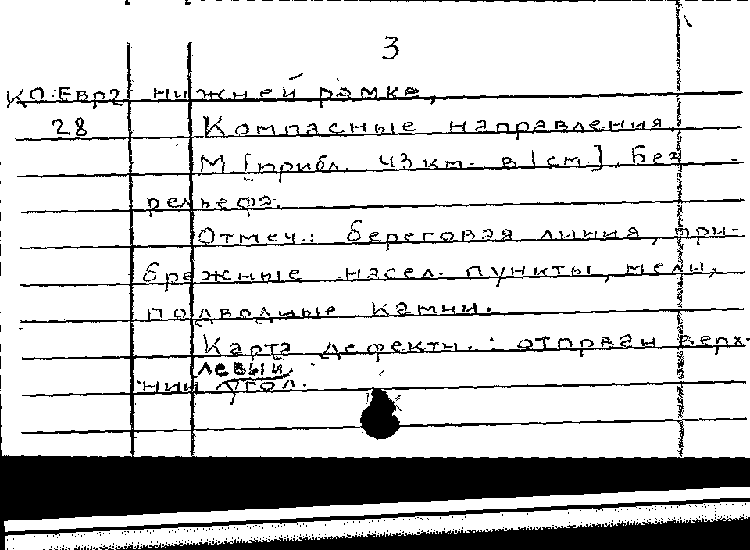 3
КО.Евр2 нижней рамке,
28 Компасные направления.
М [прибл. 43 км. в 1 см]. Без
рельефа.
Отмеч.: береговая линия, при-
брежные насел. пункты, мели,
подводные камни.
Карта дефектн.: оторван верх-
левый
ний угол.